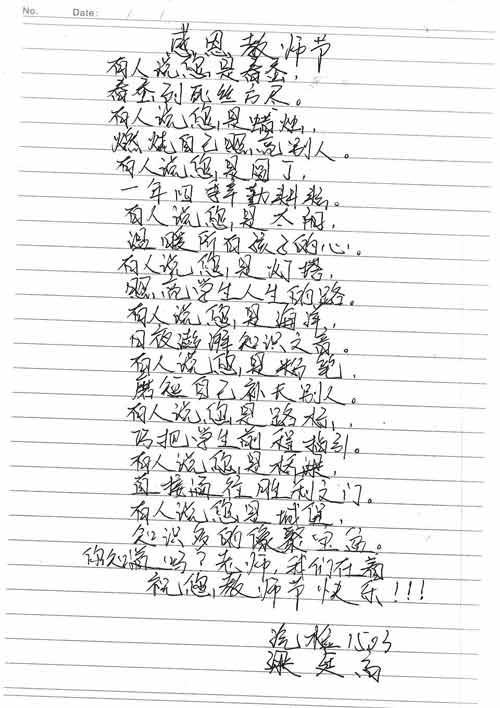 No.    Date:    /    /
感恩教师节
有人说您是春蚕,
春蚕到死丝方尽。
有人说您是蜡烛,
燃烧自己照亮别人。
有人说您是园丁,
一年四季辛勤
有人说您是太阳,
温暖所有孩子的心。
有人说您是灯塔,
照亮学生人生的路。
有人说您是海洋,
日夜澎湃知识之音。
有人说您是粉笔,
磨短自己补长别人。
有人说您是路标,
把学生前程指引。
有人说您是桥梁,
直接通往胜利之门。
有人说您是城堡,
知识多的像聚宝盆。
你知道吗?老师,我们在
祝您教师节快乐!!!
汽检1503